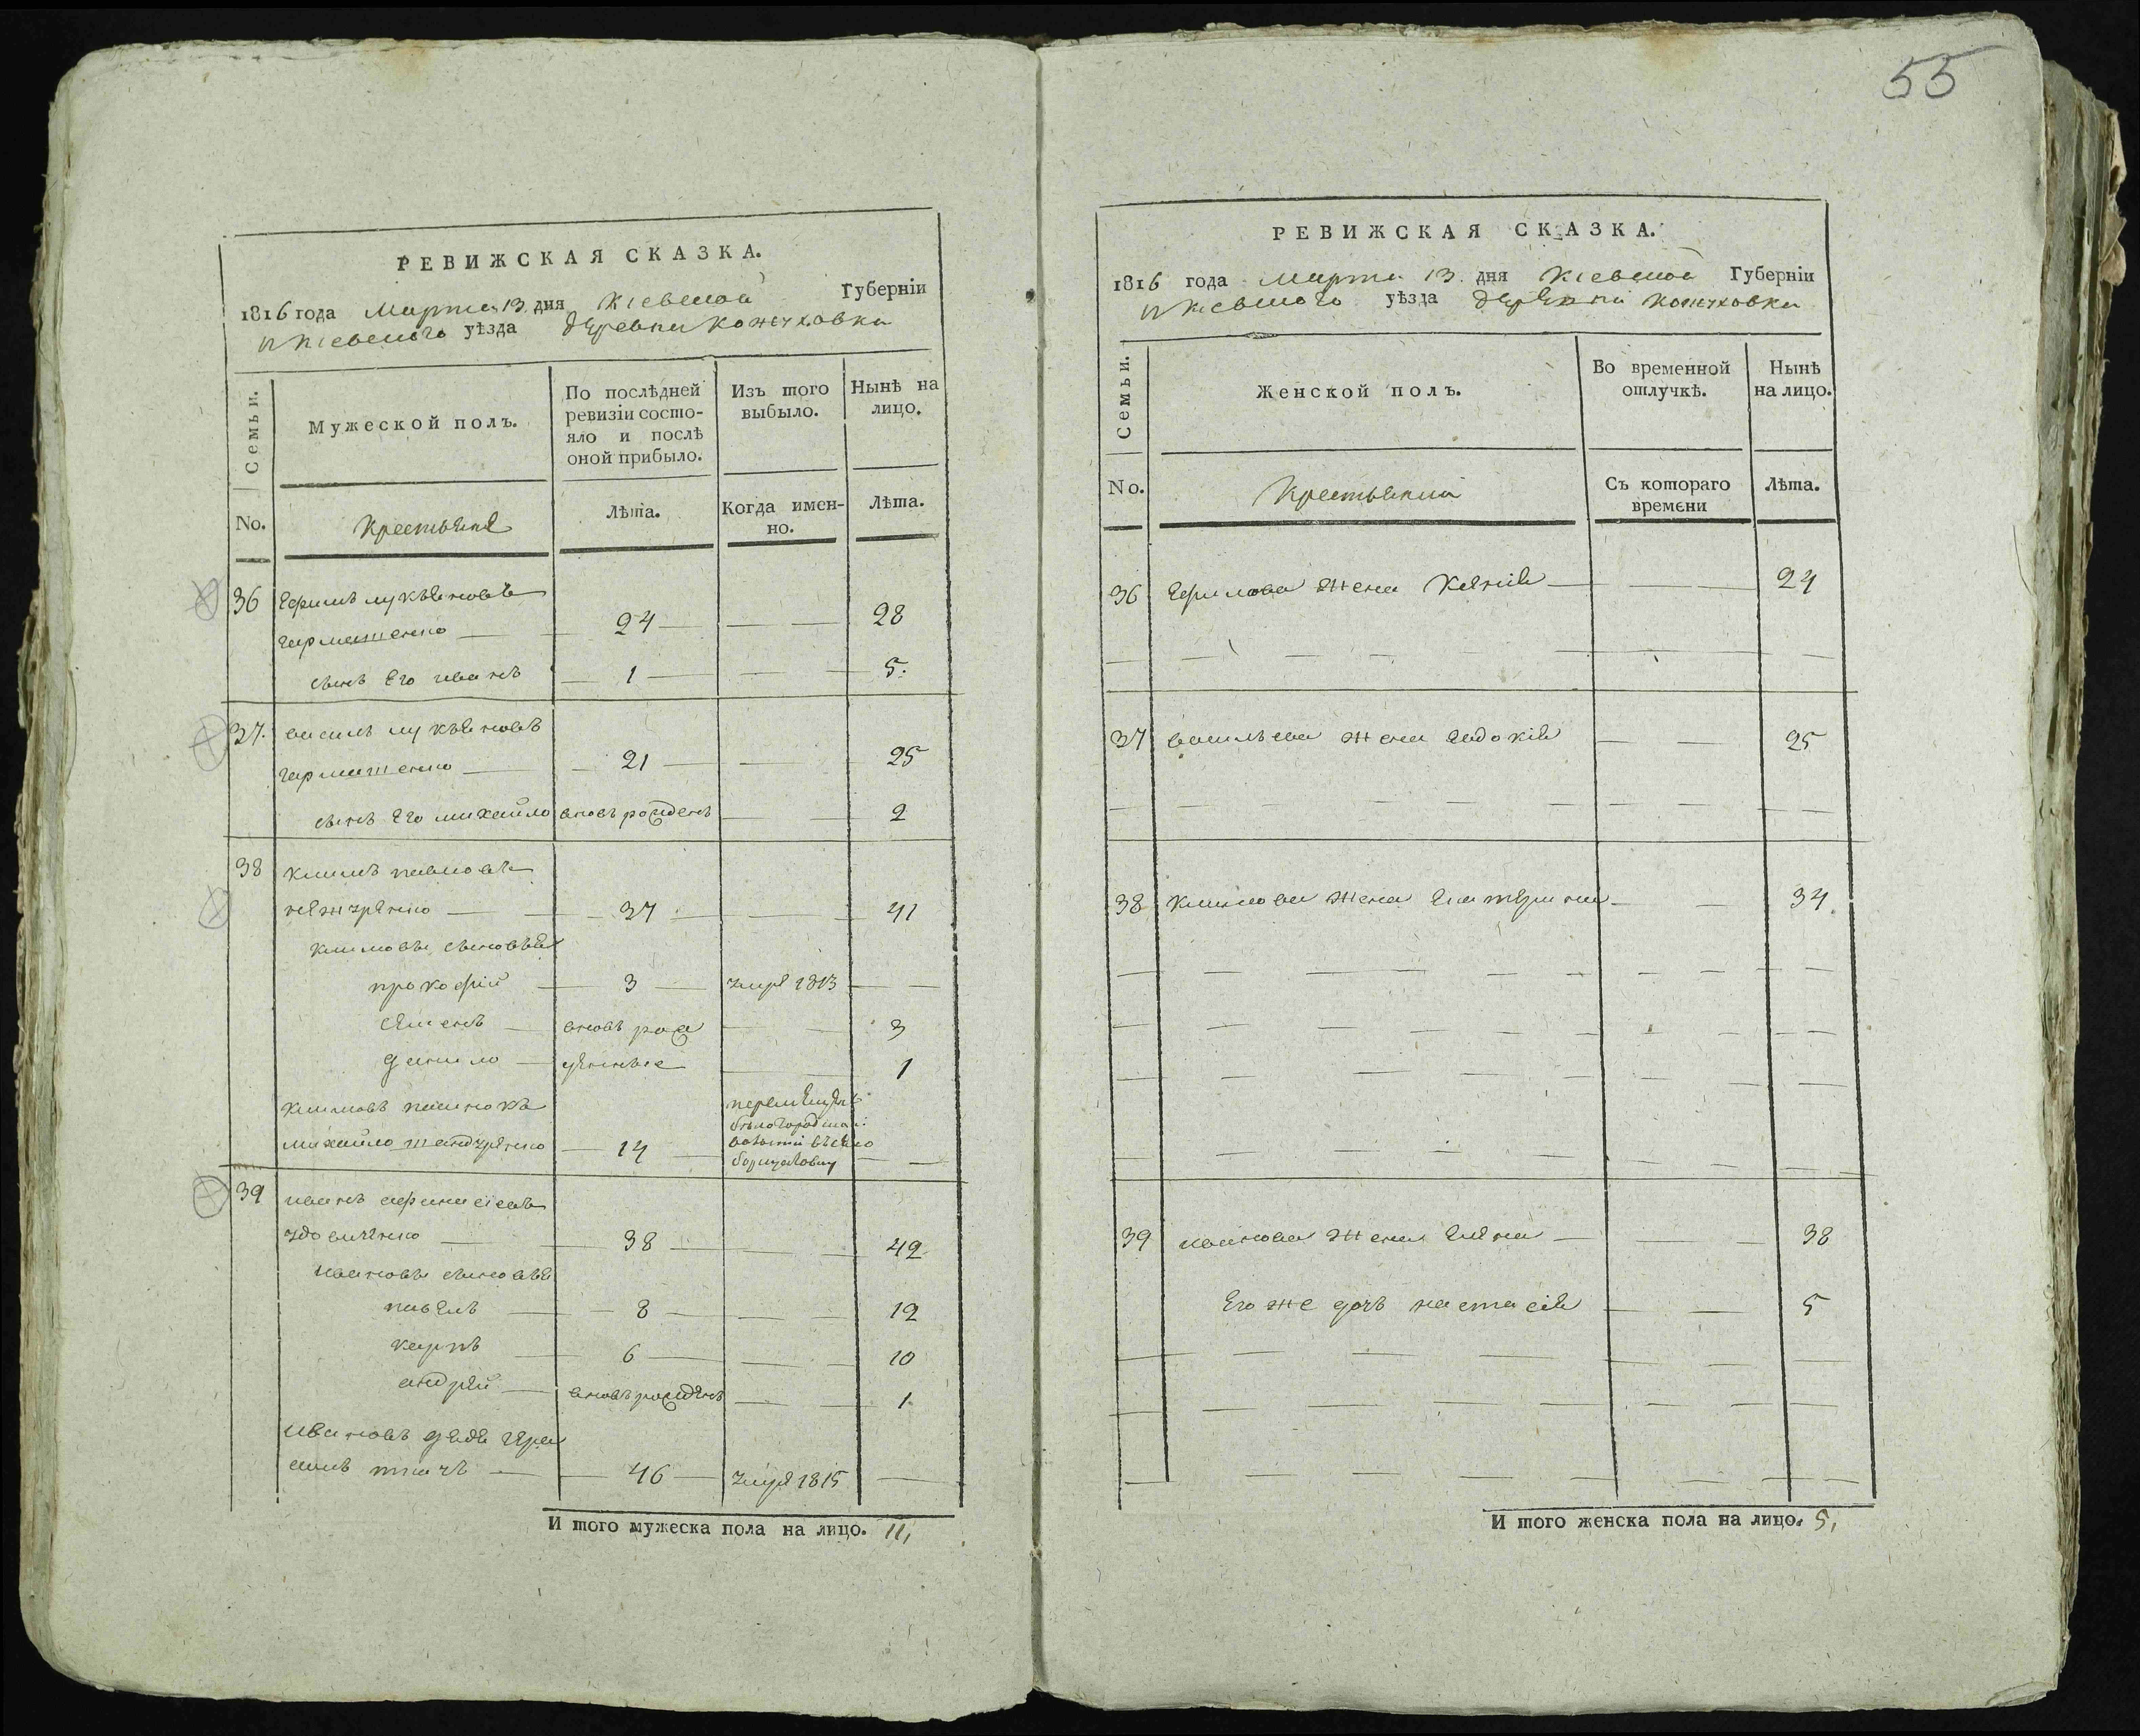 55
РЕВИЖСКАЯ СКАЗКА.
1816 года Марта 13 дня Кіевской Губерніи
и Кіевского уѣзда деревни Кожуховки
Семьи.
Мужеской полъ.
По послѣдней ревизіи состо-
яло и послѣ оной прибыло.
Изъ того выбыло.
Нынѣ на лицо.
No.
Крестьяне
Лѣта.
Когда имен-
но.
Лѣта.
36 Ефимъ лукъяновъ
гарматенко 24 28
сынъ Его иванъ 1 5.
37. василь лукъяновъ
гарматенко 21 25
сынъ Его михайло вновь рожденъ 2
38 климъ павловъ
37 41
климовы сыновья
прокофій 3 умре 1813
семенъ вновь рож 3
данило денные 1
климовъ пасинокъ
михайло 14
39 иванъ афанасіевъ
здовиченко 38 42
ивановы сыновья
павелъ 8 12
карпъ 6 10
андрей вновь рожденъ 1
ивановъ дядя гера
симъ ткачъ 46 умре 1815
И того мужеска пола на лицо. 11,
РЕВИЖСКАЯ СКАЗКА.
1816 года Марта 13 дня Кіевской Губерніи
и Кіевского уѣзда деревни Кожуховки
Семьи.
Женской полъ.
Во временной отлучкѣ.
Нынѣ на лицо.
No.
Крестьянки
Съ котораго времени
Лѣта.
36 Ефимова жена Ксенія 24
37 васильева жена Евдокія 25
38 климова жена Екатерина 34
39 иванова жена Елена 38
Его же дочь настасія 5
И того женска пола на лицо. 5,